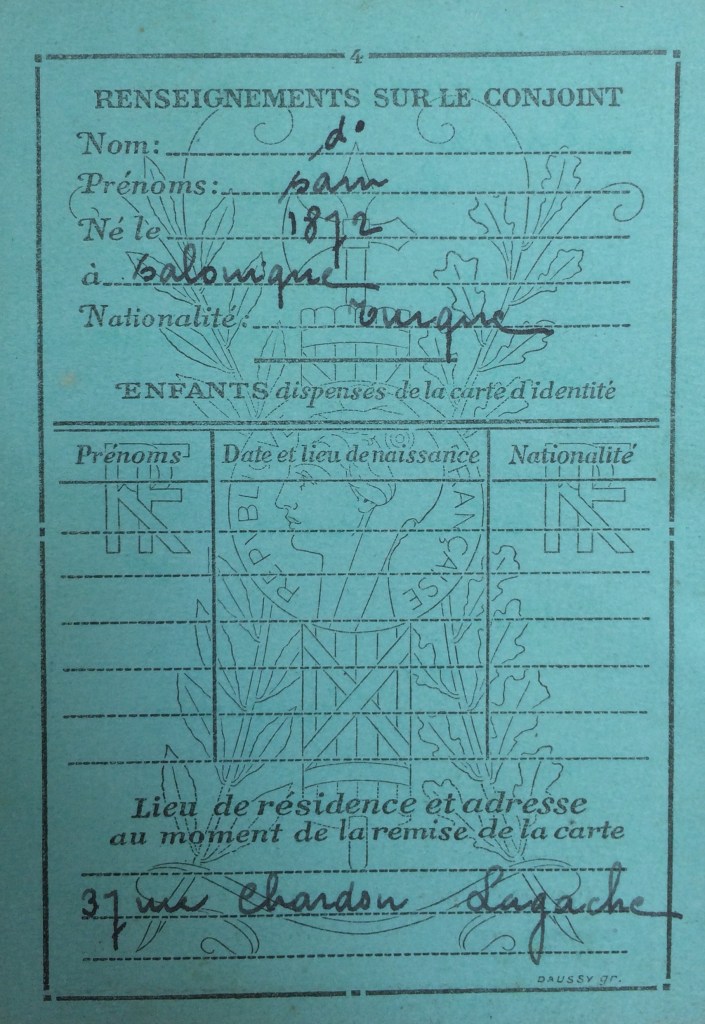 4
RENSEIGNEMENTS SUR LE CONJOINT
Nom: do
Prénoms: Sam
Né le 1872
à Salonique
Nationalité: turque
ENFANTS dispensés de la carte d'identité
Prénoms Date et lieu de naissance Nationalité
RF RF
RÉPUBLIQUE FRANÇAISE
Lieu de résidence et adresse
au moment de la remise de la carte
37 rue Chardon Lagache
DAUSSY gr.